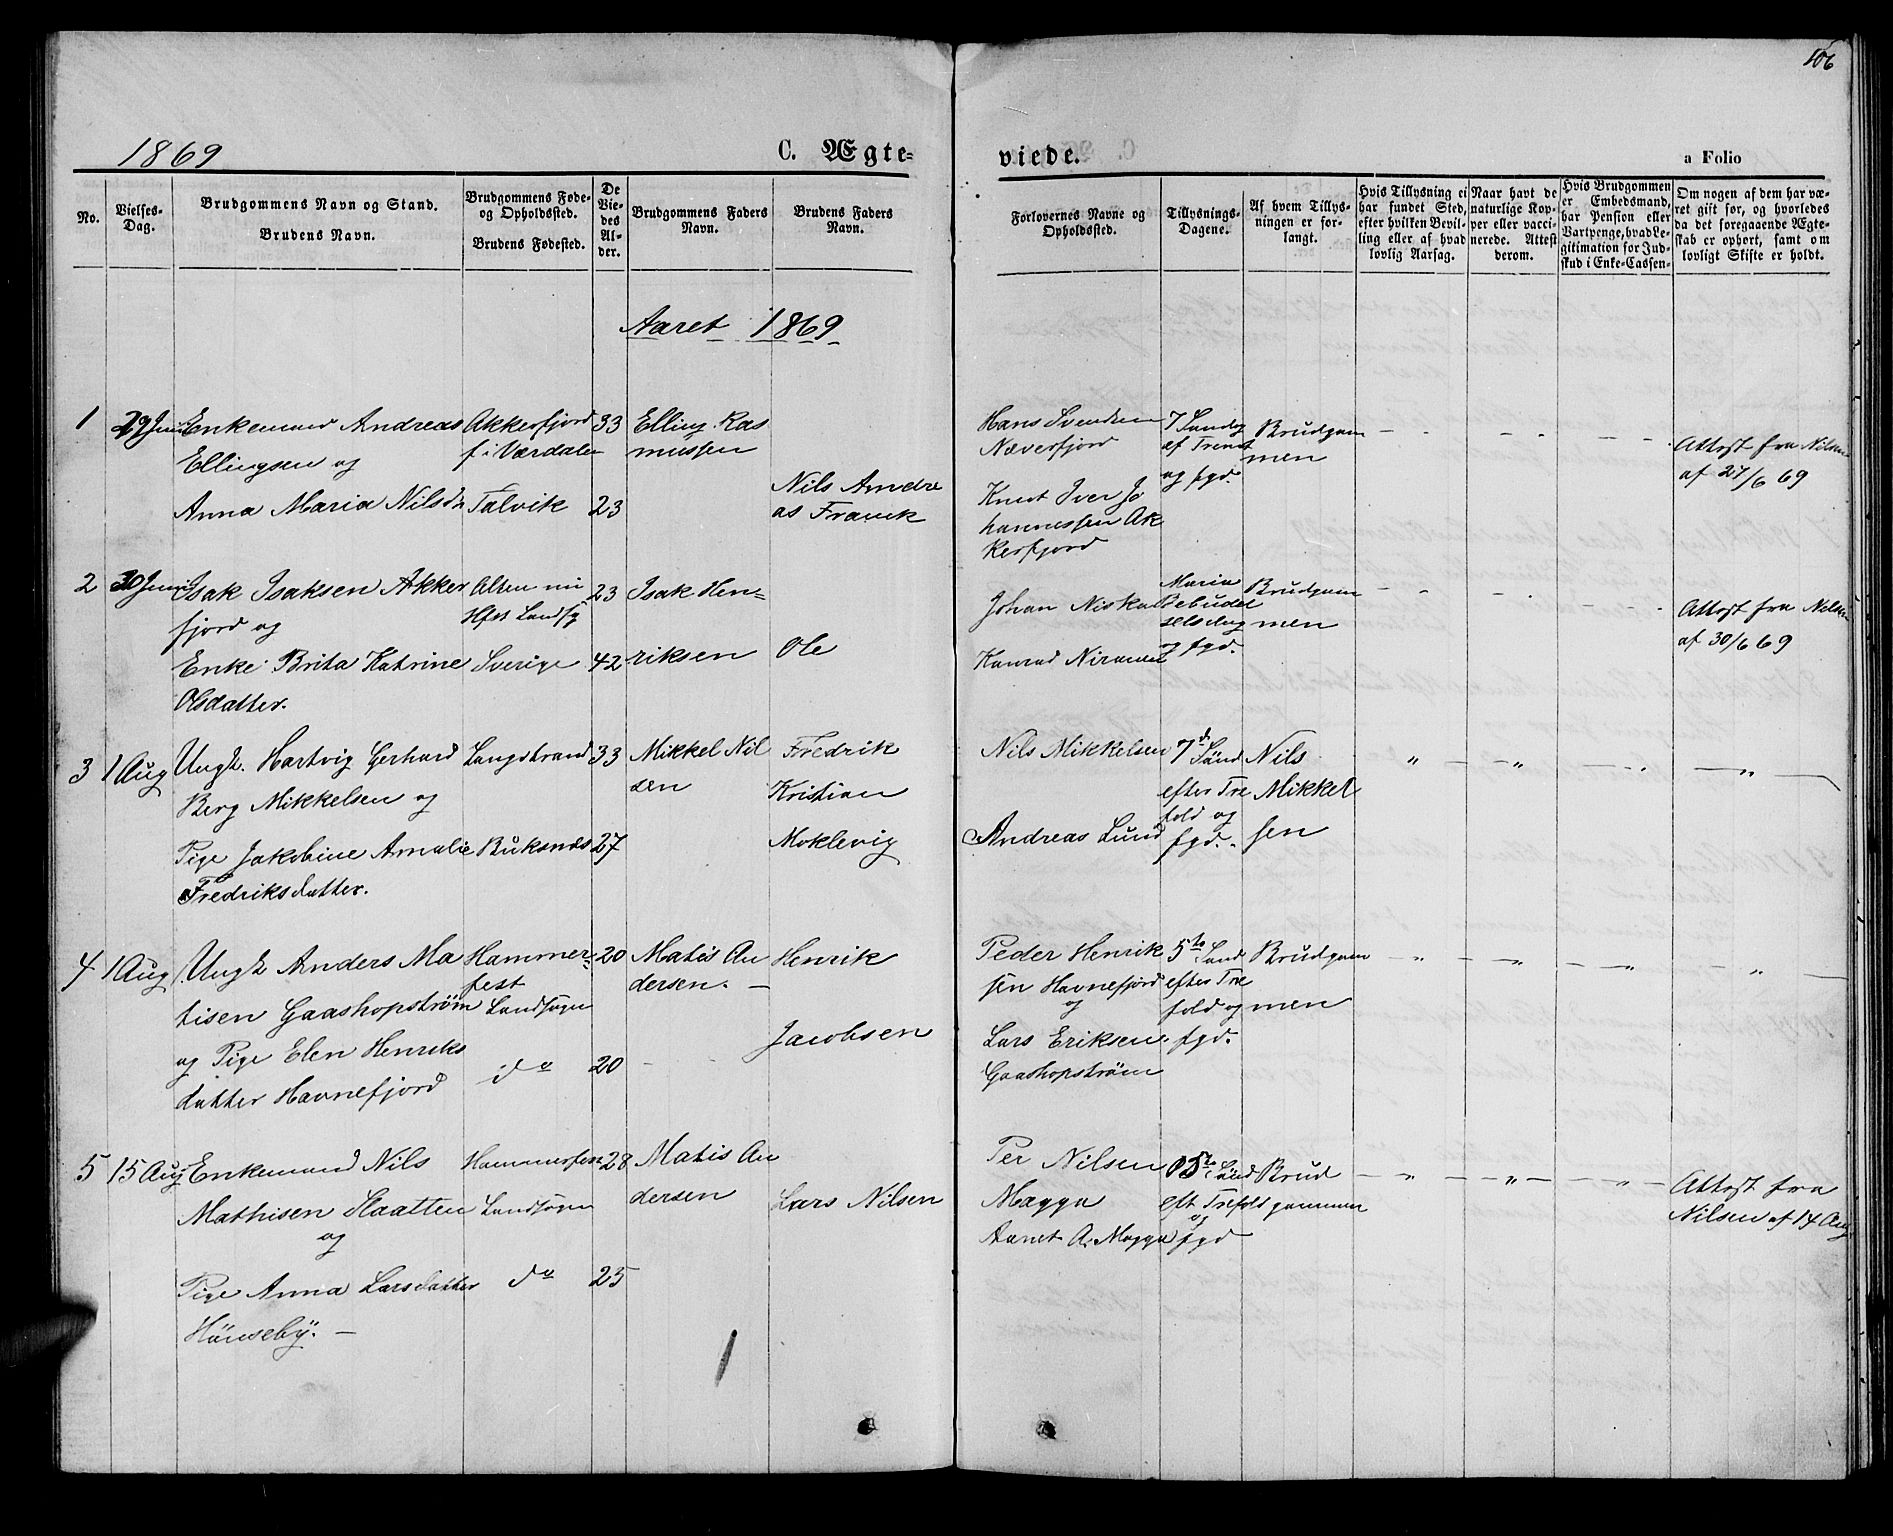 106
1869
C. Ægte-
viede.
a Folio
No.
Vielses-
Dag.
Brudgommens Navn og Stand.
Brudens Navn.
Brudgommens Føde-
og Opholdssted.
Brudens Fødested.
De
Vie-
des
Al-
der.
Brudgommens Faders
Navn.
Brudens Faders
Navn.
Forlovernes Navne og
Opholdssted.
Tillysnings-
Dagene.
Af hvem Tillys-
ningen er for-
langt.
Hvis Tillysning ei
har fundet Sted,
efter hvilken Bevil-
ling eller af hvad
lovlig Aarsag.
Naar havt de
naturlige Kop-
per eller vacci-
nerede. Attest
derom.
Hvis Brudgommen
er Embedsmand,
har Pension eller
Vartpenge, hvad Le-
gitimation for Ind-
skud i Enke-Cassen
Om nogen af dem har væ-
ret gift før, og hvorledes
da det foregaaende Ægte-
skab er ophørt, samt om
lovligt Skifte er holdt.
Aaret 1869
1
29 Juni
Enkemand Andreas
Ellingsen og
Anna Maria Nilsdr
Akkerfjord
f i Værdalen
Talvik
33
23
Elling Ras
mussen
Nils Andre
as Franck
Hans Svendsen
Næverfjord
Knut Iver Jo
hannessen Ak
kerfjord
7 Søndag
af Trenit
og fgd.
Brudgom
men
Attest fra Nilsen
af 27/6 69
2
30 Juni
Isak Isaksen Akker
fjord og
Enke Brita Katrine
Olsdatter.
Alten nu
Hfest Landsg
Sverige
23
42
Isak Hen=
riksen
Ole
Johan Niska
Konrad
Maria
Bebudel
sesdag
og fgd.
Brudgom
men
Attest fra Nilsen
af 30/6 69
3
1 Aug
Ungk. Hartvig Gerhard
Berg Mikkelsen og
Pige Jakobine Amalie
Fredriksdatter.
Langstrand
Buksnæs
33
27
Mikkel Nil
sen
Fredrik
Kristian
Moklevig
Nils Mikkelsen
Andreas Lund
7de Sönd
efter Tre
fold og
fgd.
Nils
Mikkel
sen
4
1 Aug
Ungk Anders Ma
tisen Gaashopstrøm
og Pige Elen Henriks
datter Havnefjord
Hammer=
fest
Landsogn
do
20
20
Matis An
dersen.
Henrik
Jacobsen
Peder Henrik
sen Havnefjord
og
Lars Eriksen
Gaashopstrøm
5te Sönd
efter Tre
fold og
fgd.
Brudgom
men
5
15 Aug
Enkemand Nils
Mathisen Haatten
og
Pige Anna Larsdatter
Hönseby.
Hammerfest
Landsogn
do
28
25
Matis An
dersen
Lars Nilsen
Per Nilsen
Magga
Aanet A. Magga
5te Sönd
eft Trefold
og
fgd
Brud
gommen
Attest fra
Nilsen af 14 Aug